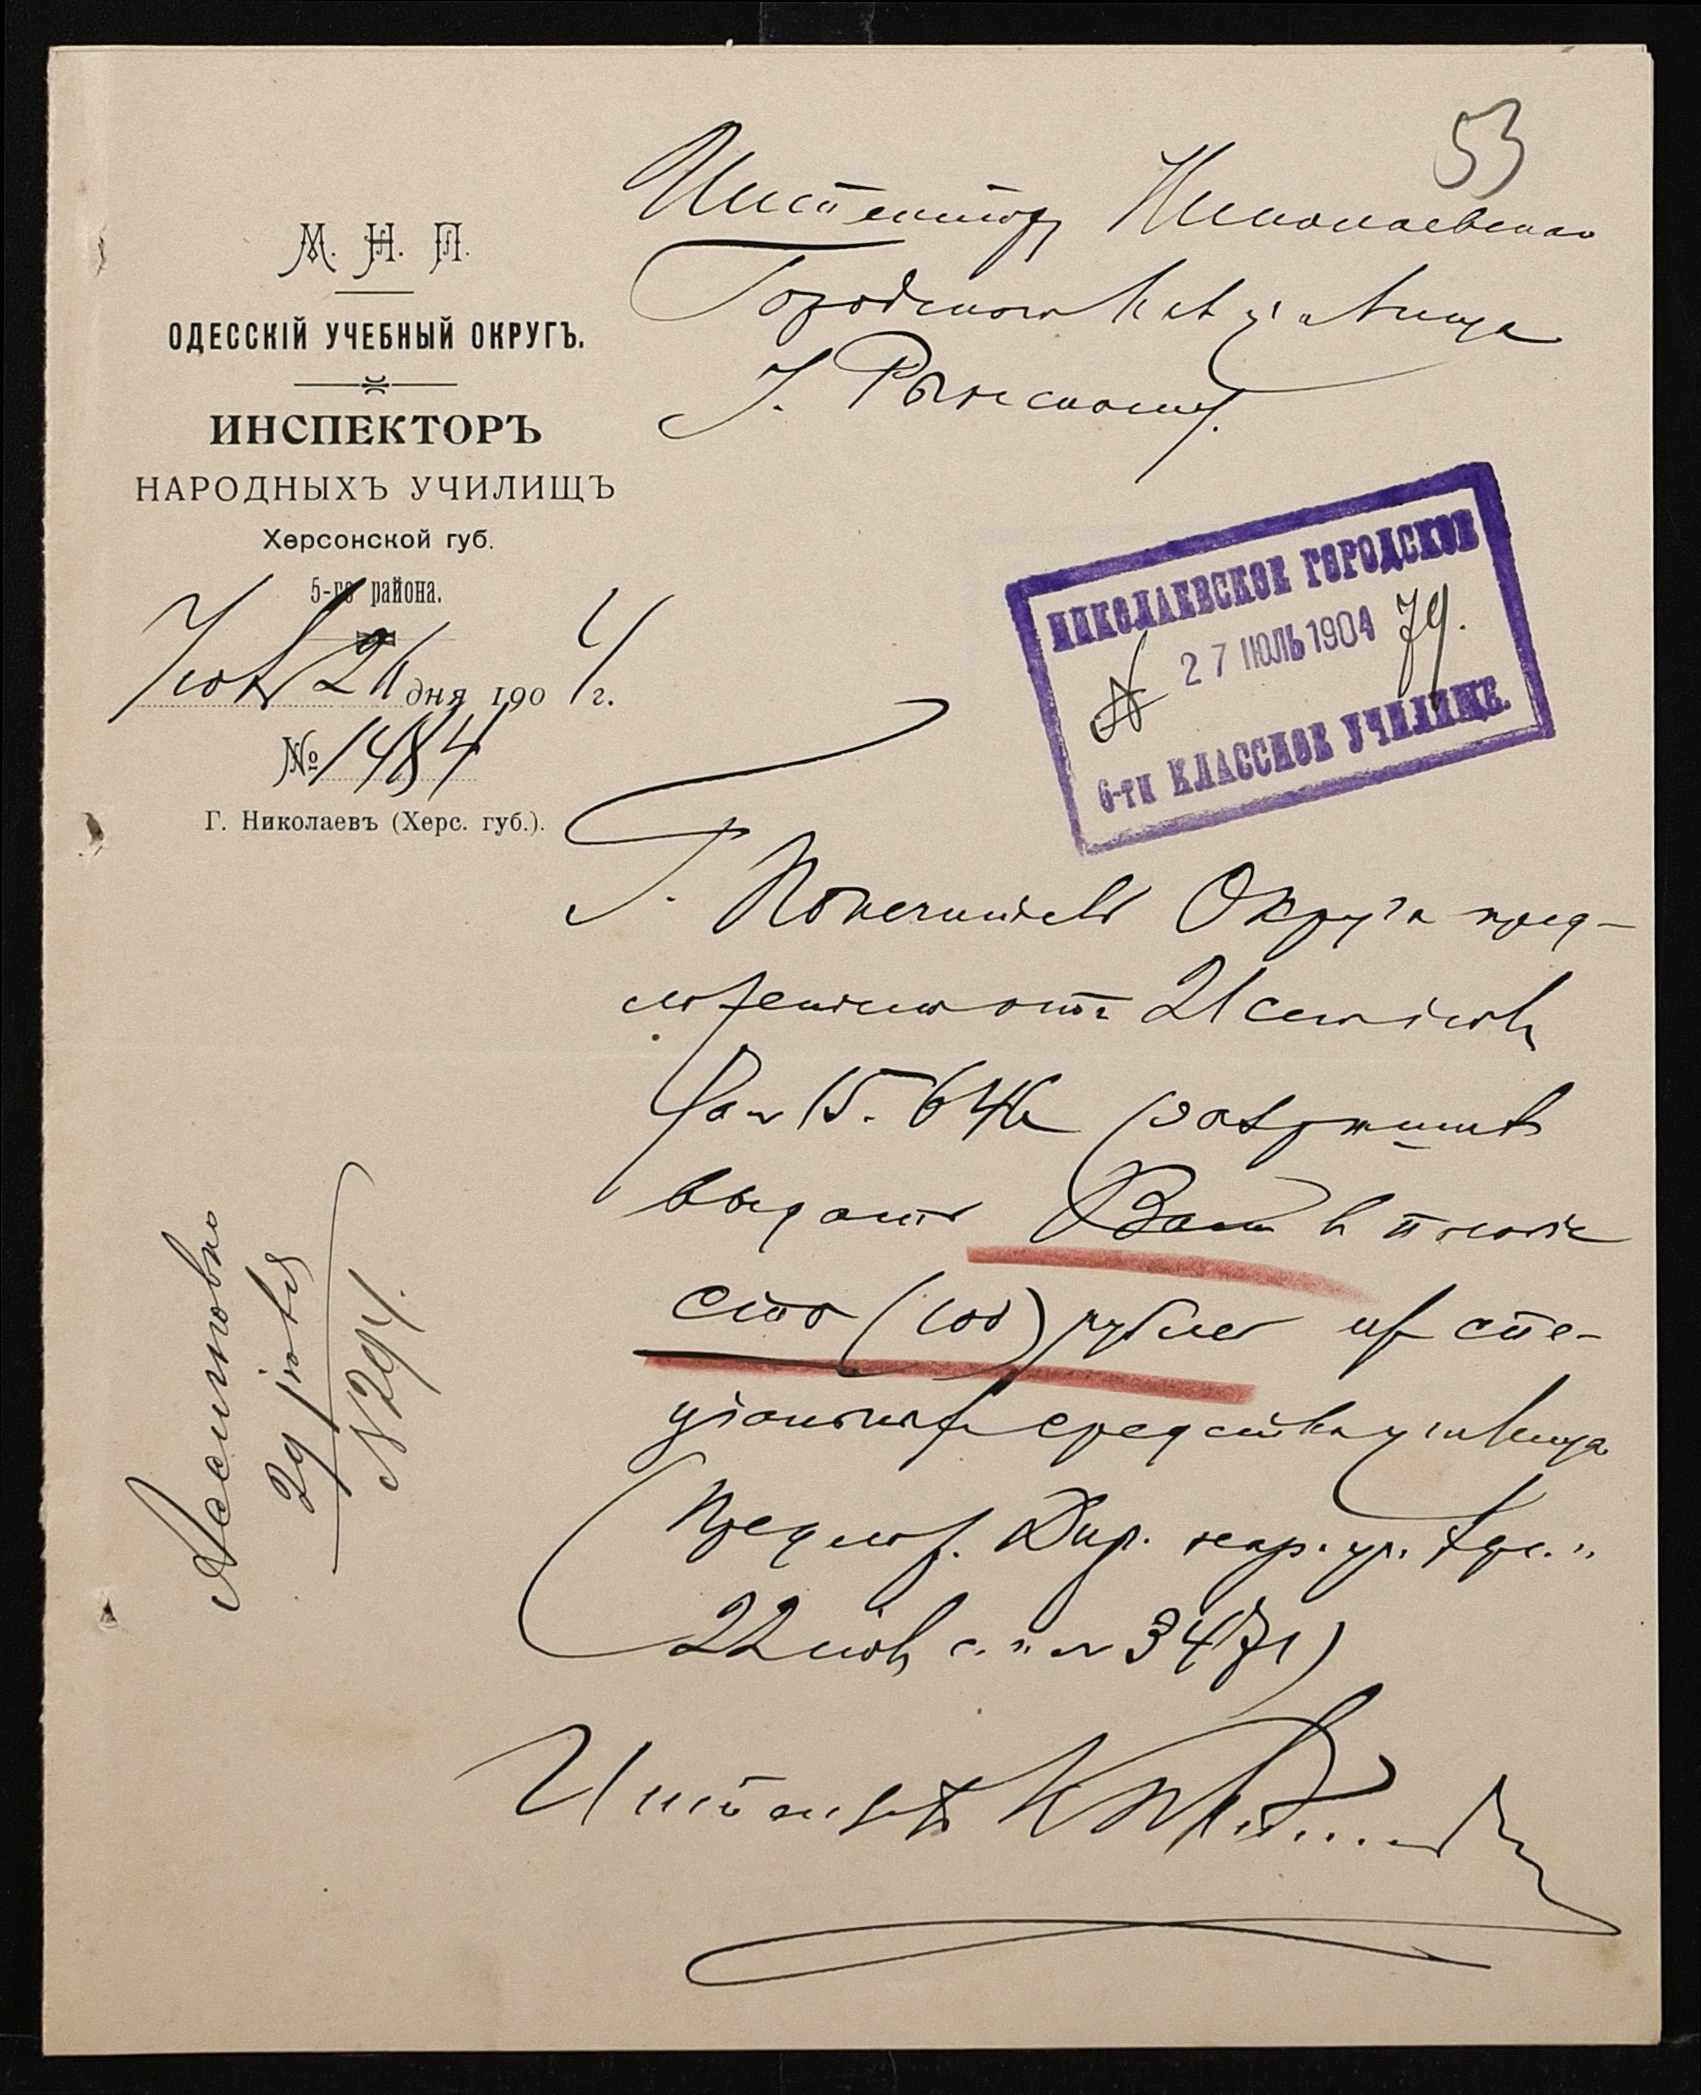 53
М. Н. П.
ОДЕССКІЙ УЧЕБНЫЙ ОКРУГЪ.
ИНСПЕКТОРЪ
НАРОДНЫХЪ УЧИЛИЩЪ
Херсонской губ.
5-го района.
Іюля 26 дня 1904 г.
№ 1484
Г. Николаевъ (Херс. губ.).
Инспектору Николаевскаго
Городского училища
Г. Рынскому.
НИКОЛАЕВСКОЕ ГОРОДСКОЕ
27 ІЮЛЬ 1904
№ 79.
6-ти КЛАССНОЕ УЧИЛИЩЕ.
Г. Попечитель Округа пред-
ложеніемъ отъ 21 сего іюля
за № 15.646 разрѣшилъ
выдать Вамъ въ пособіе
сто (100) рублей изъ спе-
ціальныхъ средствъ училища
(Предлож. Дир. нар. уч. Хер.
22 іюля с. г. № 3471)
Инспекторъ
Ассигновка
29 іюля
№ 294.